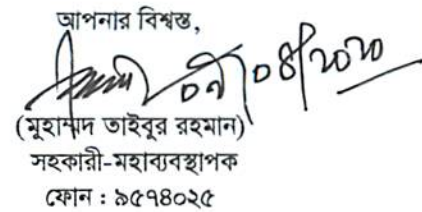 আপনার বিশ্বস্ত,
(মুহাম্মদ তাইবুর রহমান)
সহকারী-মহাব্যবস্থাপক
ফোন : ৯৫৭৪০২৫